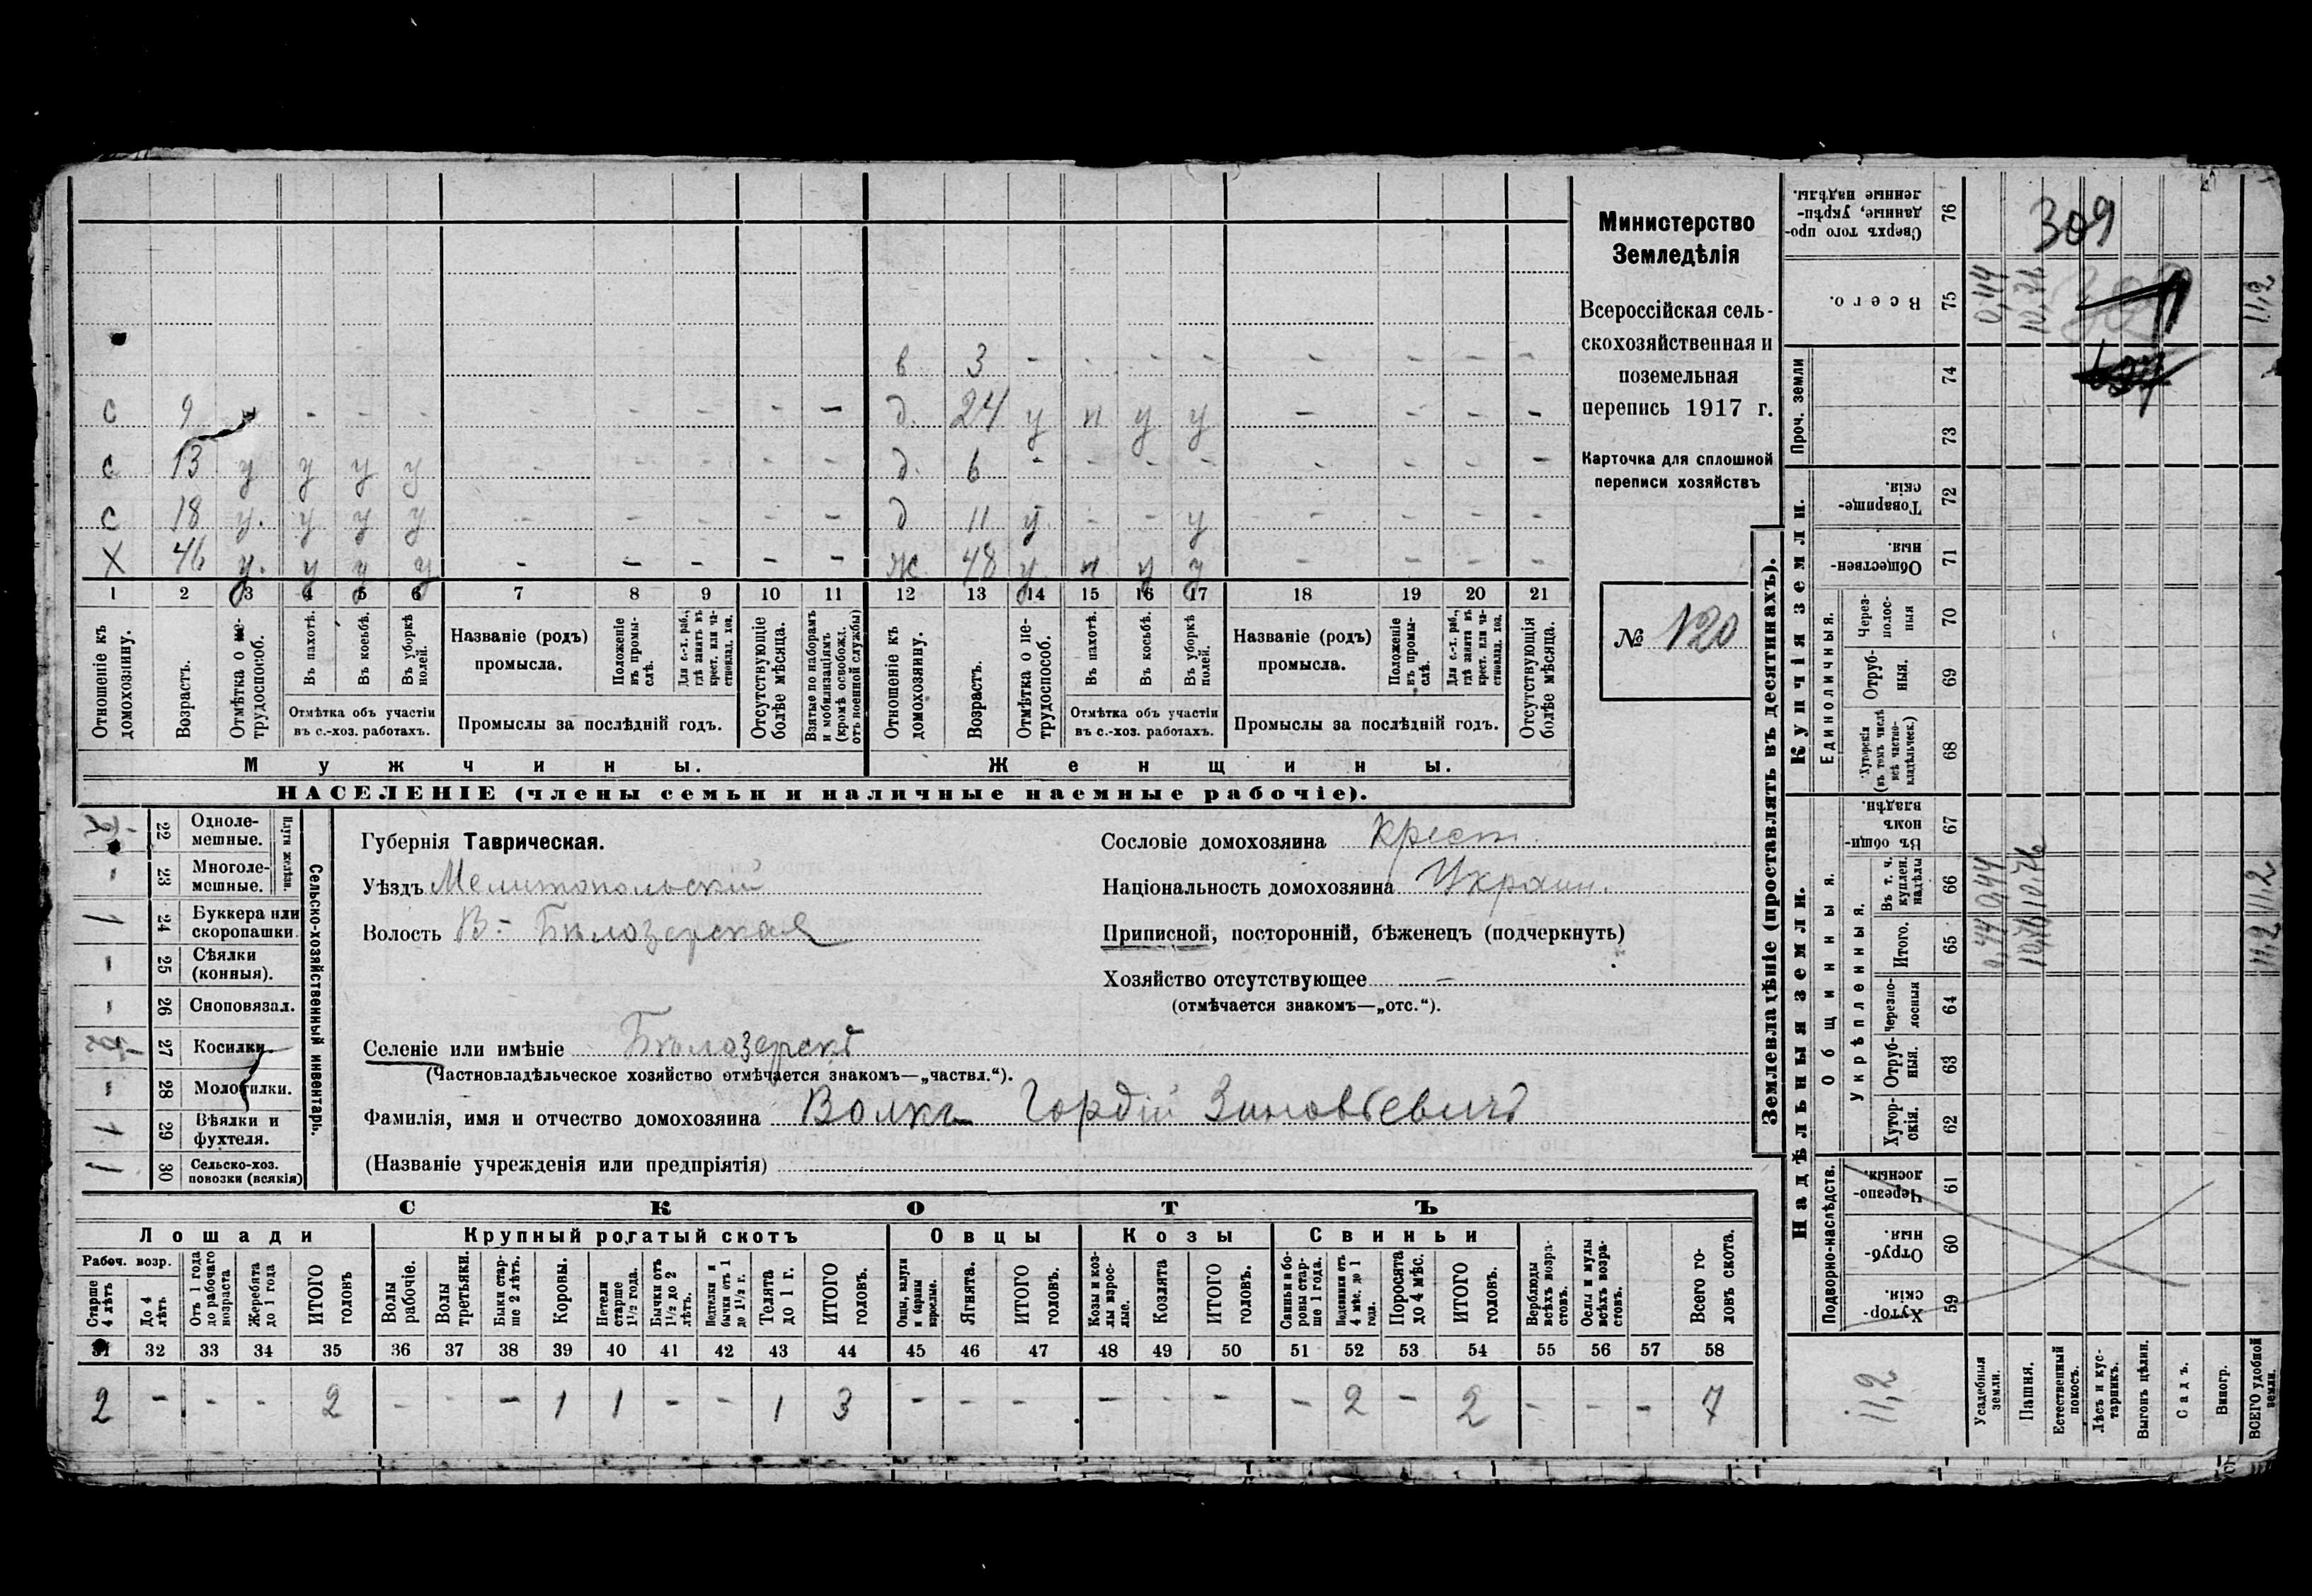 в 3 - - - - - - - -
с 9 - - - - - - - - д. 24 у п у у - - - -
с 13 у у у у - - - - - д. 6 - - - - - - - -
с 18 у. у у у - - - - - д 11 у - - у - - - -
Х 46 у. у у у - - - - - ж 48 у п у у - - - -
1 2 3 4 5 6 7 8 9 10 11 12 13 14 15 16 17 18 19 20 21
Отношеніе къ домохозяину.
Возрастъ.
Отмѣтка о не-
трудоспособ.
Въ пахотѣ.
Въ косьбѣ.
Въ уборкѣ
полей.
Отмѣтка объ участіи
въ с.-хоз. работахъ.
Названіе (родъ)
промысла.
Положеніе
въ промы-
слѣ.
Для с.-х. раб.,
гдѣ занятъ въ
крест. или ча-
стновлад. хоз.
Промыслы за послѣдній годъ.
Отсутствующіе
болѣе мѣсяца.
Взятые по наборамъ
и мобилизаціямъ
(кромѣ освобожд.
отъ военной службы)
Отношеніе къ
домохозяину.
Возрастъ.
Отмѣтка о не-
трудоспособ.
Въ пахотѣ.
Въ косьбѣ.
Въ уборкѣ
полей.
Отмѣтка объ участіи
въ с.-хоз. работахъ.
Названіе (родъ)
промысла.
Положеніе
въ промы-
слѣ.
Для с.-х. раб.,
гдѣ занята въ
крест. или ча-
стновлад. хоз.
Промыслы за послѣдній годъ.
Отсутствующія
болѣе мѣсяца.
Мужчины. Женщины.
НАСЕЛЕНІЕ (члены семьи и наличные наемные рабочіе).
Министерство
Земледѣлія
Всероссійская сель-
скохозяйственная и
поземельная
перепись 1917 г.
Карточка для сплошной
переписи хозяйствъ
№ 120
Плуги желѣзн.
22 Одноле-
мешные.
- 23 Многоле-
мешные.
1 24 Буккера или
скоропашки.
- 25 Сѣялки
(конныя).
- 26 Сноповязал.
27 Косилки
- 28 Молотилки.
1 29 Вѣялки и
фухтеля.
1 30 Сельско-хоз.
повозки (всякія)
Сельско-хозяйственный инвентарь.
Губернія Таврическая.
Уѣздъ Мелитопольскій
Волость В.- Бѣлозерская
Сословіе домохозяина Крест.
Національность домохозяина Украин.
Приписной, посторонній, бѣженецъ (подчеркнуть)
Хозяйство отсутствующее -
(отмѣчается знакомъ—„отс.“).
Селеніе или имѣніе
(Частновладѣльческое хозяйство отмѣчается знакомъ—„частвл.“).
Фамилія, имя и отчество домохозяина Волкъ Гордій Зиновьевичъ
(Названіе учрежденія или предпріятія)
СКОТЪ
Лошади Крупный рогатый скотъ Овцы Козы Свиньи
Рабоч. возр.
Старше
4 лѣтъ
До 4
лѣтъ
Отъ 1 года
до рабочаго
возраста
Жеребята
до 1 года
ИТОГО
головъ
Волы
рабочіе.
Волы
третьяки.
Быки стар-
ше 2 лѣтъ.
Коровы.
Нетели
старше
1½ года.
Бычки отъ
1½ до 2
лѣтъ.
Нетелки и
бычки отъ 1
до 1½ г.
Телята
до 1 г.
ИТОГО
головъ.
Овцы, валухи
и бараны
взрослые.
Ягнята.
ИТОГО
головъ.
Козы и коз-
лы взрос-
лые.
Козлята
ИТОГО
головъ.
Свиньи и бо-
ровы стар-
ше 1 года.
Подсвинки отъ
4 мѣс. до 1
года.
Поросята
до 4 мѣс.
ИТОГО
головъ.
Верблюды
всѣхъ возра-
стовъ.
Ослы и мулы
всѣхъ возра-
стовъ.
Всего го-
ловъ скота.
31 32 33 34 35 36 37 38 39 40 41 42 43 44 45 46 47 48 49 50 51 52 53 54 55 56 57 58
2 - - - 2 - - - 1 1 - - 1 3 - - - - - - - 2 - 2 - - - 7
Землевладѣніе (проставлять въ десятинахъ).
Надѣльныя земли. Купчія земли.
Подворно-наслѣдств.
Хутор-
скія. 59
Отруб-
ныя. 60
Черезпо-
лосныя. 61
Общинныя.
Укрѣпленныя.
Хутор-
скія. 62
Отруб-
ныя. 63
Черезпо-
лосныя 64
Итого. 65
Въ т. ч.
куплен.
надѣлы 66
Въ общин-
номъ
владѣн. 67
Единоличныя.
Хуторскія
(въ томъ числѣ
всѣ частно-
владѣльческ.) 68
Отруб-
ныя. 69
Через-
полос-
ныя 70
Обществен-
ныя. 71
Товарище-
скія. 72
Проч. земли
73 74
Всего. 75
Сверхъ того про-
данные, укрѣп-
ленные надѣлы. 76
11,2
Усадебныя
земли. 0,44 0,44 0,44
Пашня. 10,76 10,76 10,76
Естественный
покосъ.
Лѣсъ и кус-
тарникъ.
Выгонъ цѣлин.
Садъ.
Виногр.
ВСЕГО удобной
земли. 11,2 11,2 11,2
309